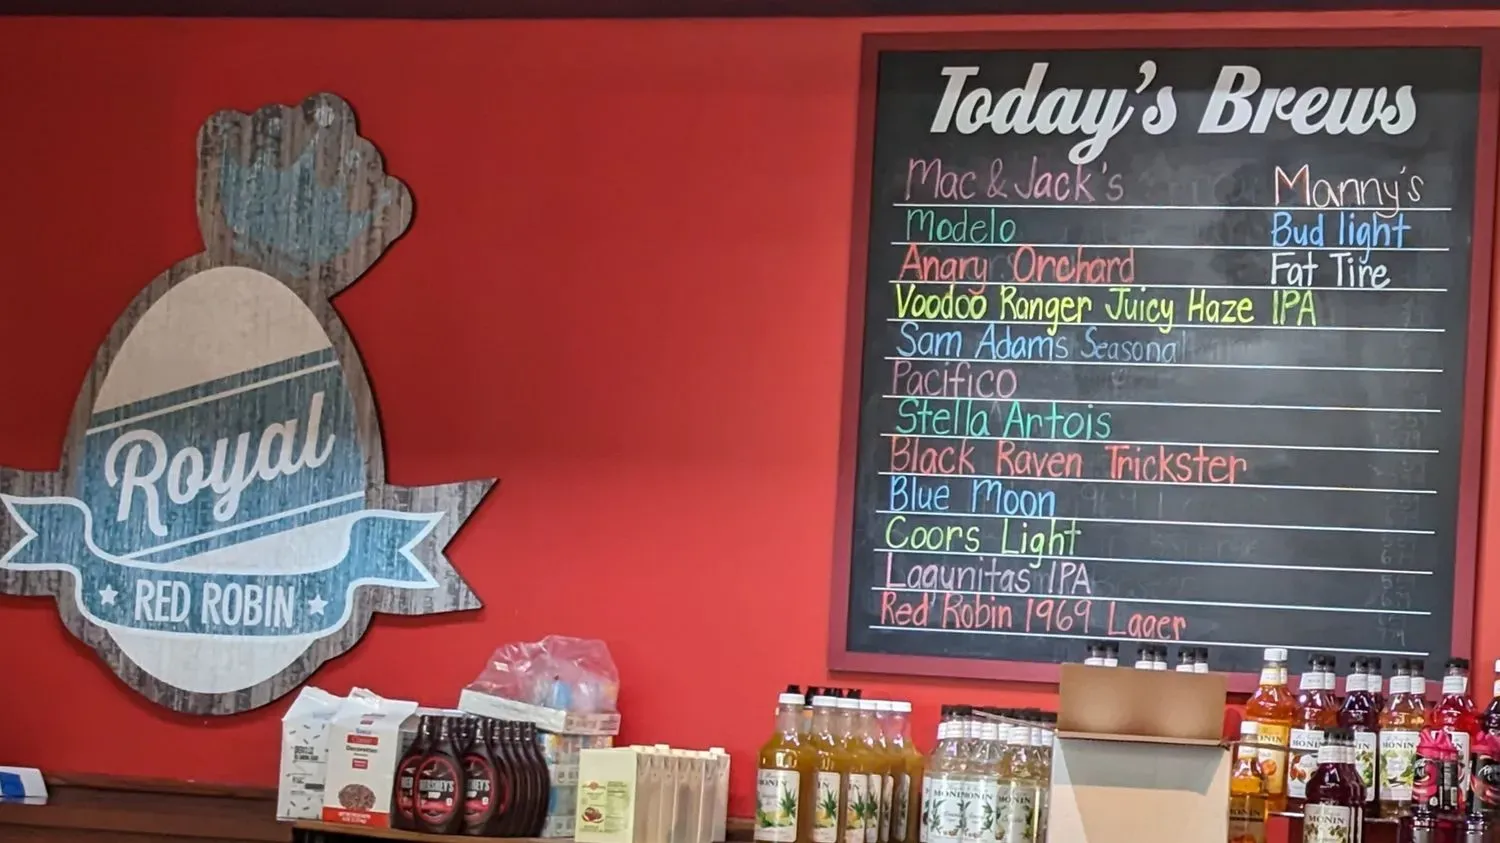 Royal
RED ROBIN
Today's Brews
Mac & Jack's Manny's
Modelo Bud light
Angry Orchard Fat Tire
Voodoo Ranger Juicy Haze IPA
Sam Adams Seasonal
Pacifico
Stella Artois
Black Raven Trickster
Blue Moon
Coors Light
Lagunitas IPA
Red Robin 1969 Lager
HERSHEY'S
SYRUP
MONIN
MONIN
MONIN
MONIN
MONIN
MONIN